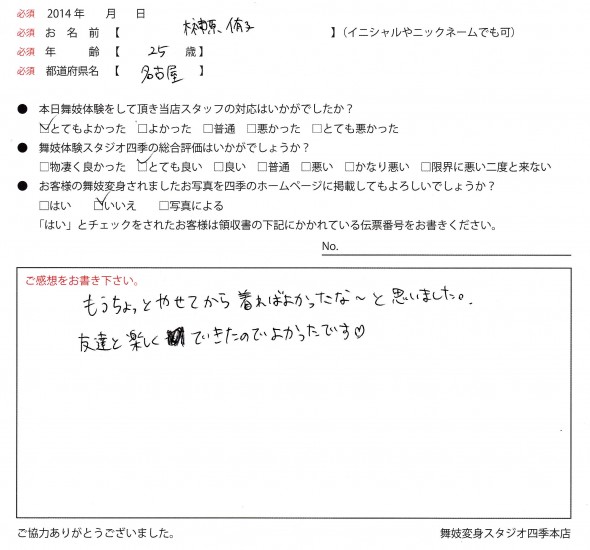 必須 2014年 月 日
必須 お名前【 榊原 侑子 】(イニシャルやニックネームでも可)
必須 年齢【 25 歳】
必須 都道府県名【 名古屋 】
● 本日舞妓体験をして頂き当店スタッフの対応はいかがでしたか?
☑とてもよかった □よかった □普通 □悪かった □とても悪かった
● 舞妓体験スタジオ四季の総合評価はいかがでしょうか?
□物凄く良かった ☑とても良い □良い □普通 □悪い □かなり悪い □限界に悪い二度と来ない
● お客様の舞妓変身されましたお写真を四季のホームページに掲載してもよろしいでしょうか?
□はい ☑いいえ □写真による
「はい」とチェックをされたお客様は領収書の下記にかかれている伝票番号をお書きください。
No.
ご感想をお書き下さい。
もうちょっとやせてから着ればよかったな〜と思いました。
友達と楽しくできたのでよかったです♡
ご協力ありがとうございました。 舞妓変身スタジオ四季本店